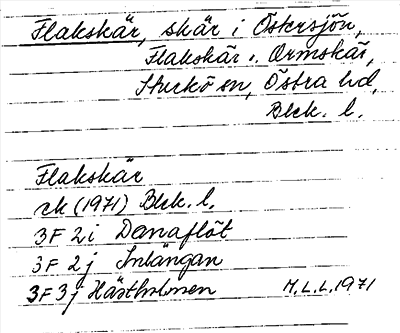 Flakskär, skär i Östersjön,
Flakskär o. Ormskär,
Sturkö sn, Östra hd,
Blek. l.
Flakskär
rk (1971) Blek. l.
3F 2i Danaflöt
3F 2j Inlängan
3F 3j Hästholmen M.L.L. 1971